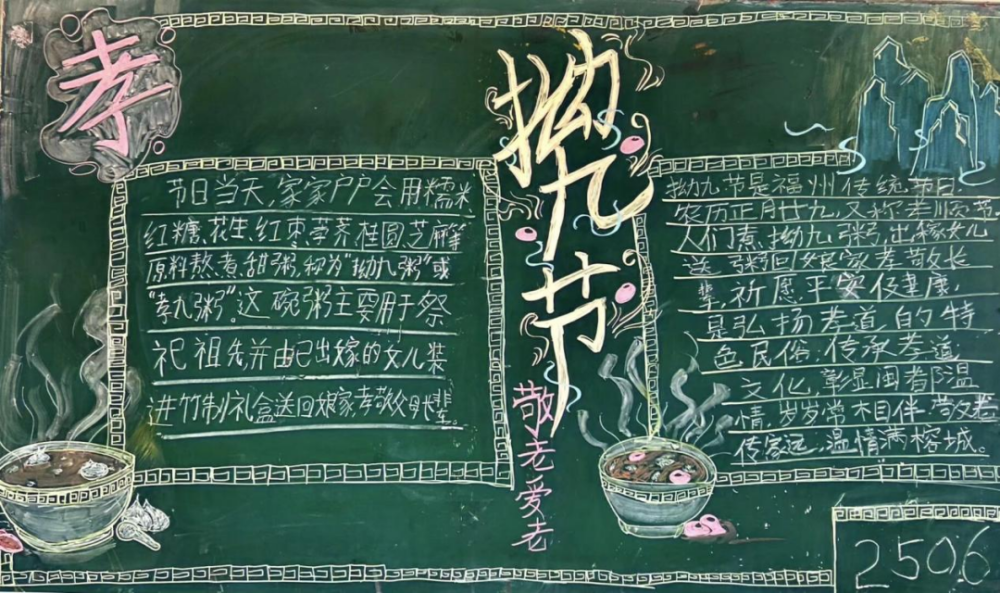 孝
拗九节
敬老爱老
节日当天,家家户户会用糯米
红糖、花生、红枣、荸荠、桂圆、芝麻等
原料熬煮甜粥,称为“拗九粥”或
“孝九粥”。这碗粥主要用于祭
祀祖先,并由已出嫁的女儿装
进竹制礼盒送回娘家孝敬父母长辈。
拗九节是福州传统节日,
农历正月廿九,又称孝顺节,
人们煮拗九粥,出嫁女儿
送粥回娘家孝敬长
辈,祈愿平安健康,
是弘扬孝道的特
色民俗,传承孝道
文化,彰显闽都温
情,岁岁常相伴,敬老
传家远,温情满榕城。
2506